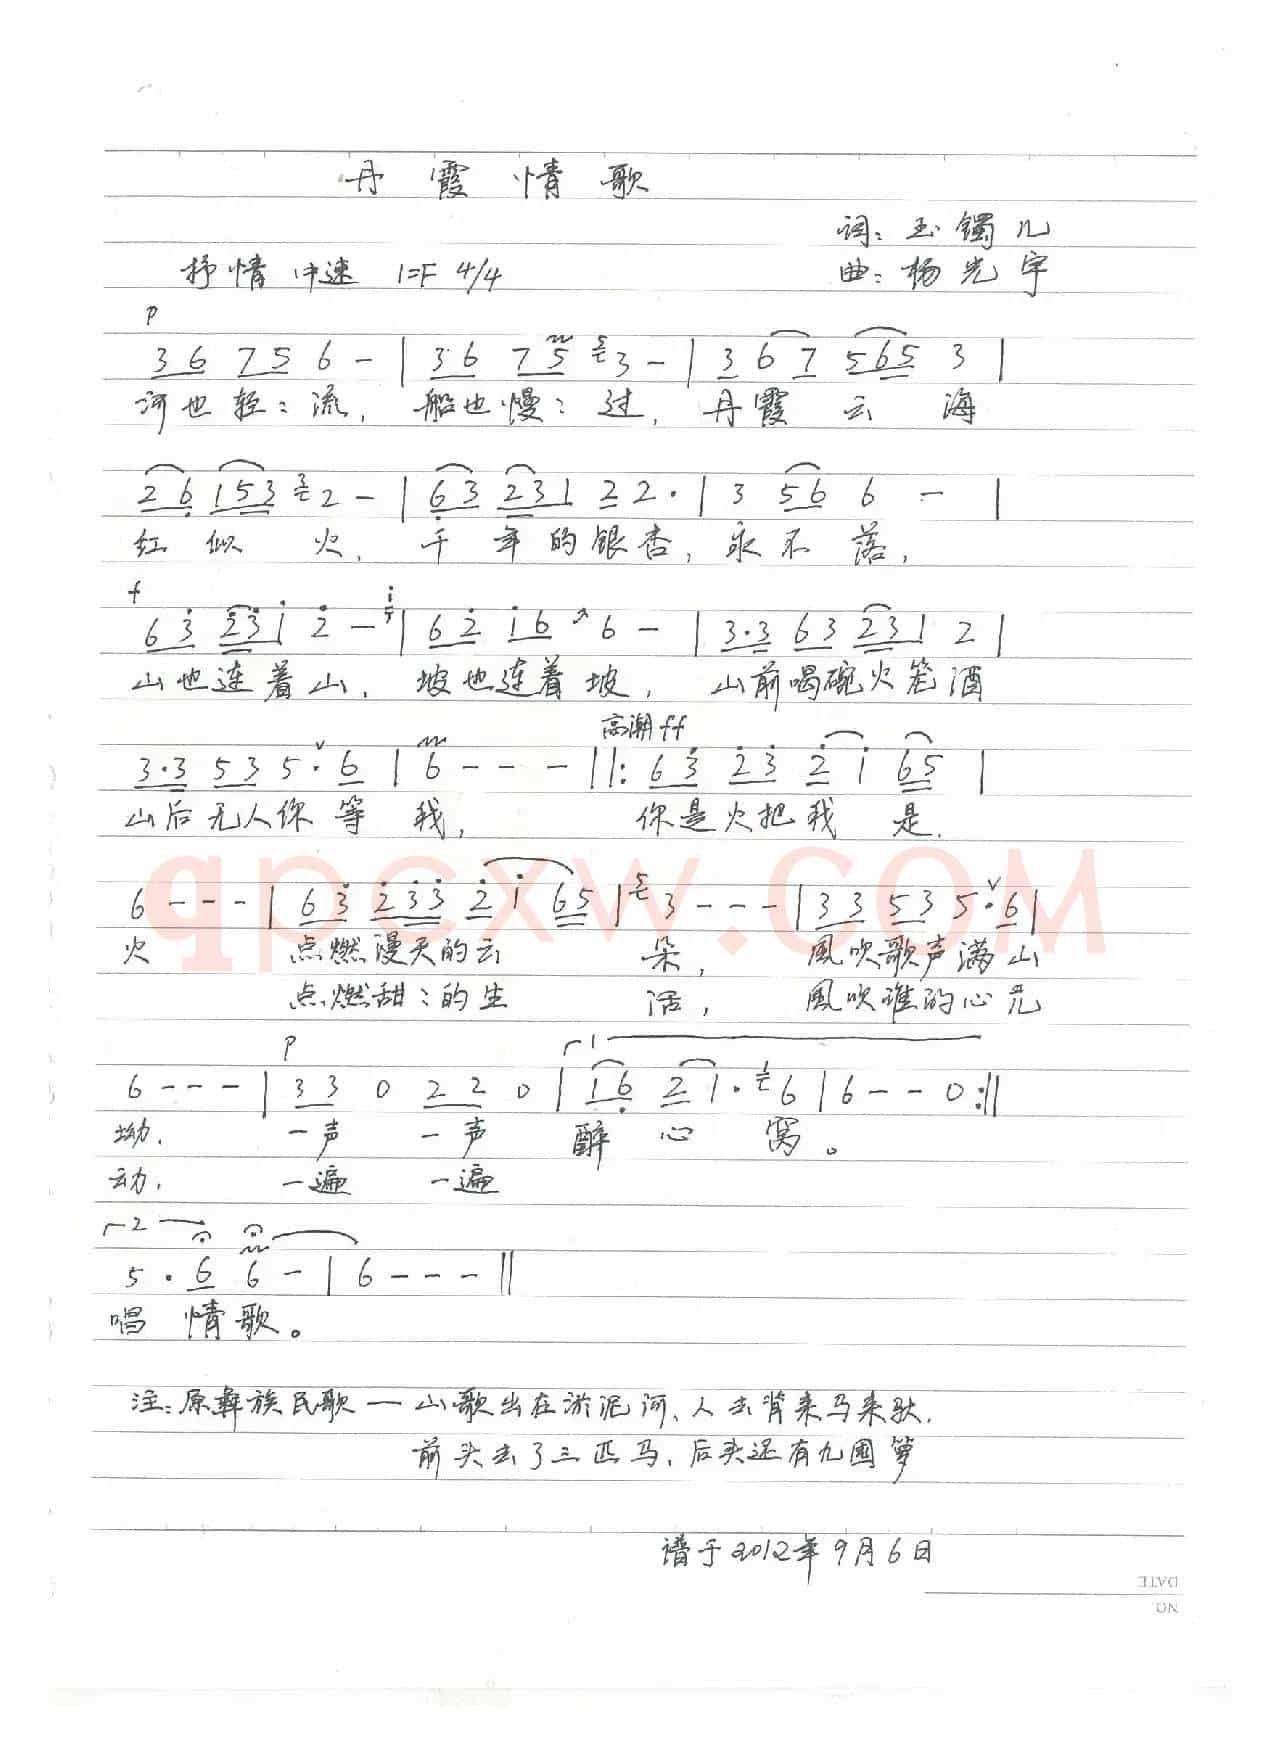 丹霞情歌
词：玉镯儿
抒情 中速 1=F 4/4
曲：杨光宇
p
3 6 7 5 6 - | 3 6 7 5 5 3 - | 3 6 7 5 6 5 3 |
河也轻：流，船也慢：过，丹霞云海
2 6 1 5 3 3 2 - | 6 3 2 3 1 2 2 · | 3 5 6 6 - |
红似火，千年的银杏，永不落，
f
6 3 2 3 1 2 - i | 6 2 1 6 6 - | 3·3 6 3 2 3 1 2 |
山也连着山，坡也连着坡，山前喝碗火笼酒
高潮 ff
3·3 5 3 5 · 6 | 6 - - - ||: 6 3 2 3 2 1 6 5 |
山后无人你等我，你是火把我是
6 - - - | 6 3 2 3 3 2 1 6 5 | 5 3 - - - | 3 3 5 3 5 · 6 |
火 点燃漫天的云朵，風吹歌声满山
点燃甜：的生活，風吹谁的心儿
p 1
6 - - - | 3 3 0 2 2 0 | 1 6 2 1 · 1 6 | 6 - - 0 :||
坳，一声 一声 醉心窝。
动，一遍 一遍
2
5 · 6 6 - | 6 - - - ||
唱情歌。
注：原彝族民歌—山歌出在淤泥河、人去背来马来驮，
前头去了三匹马，后头还有九囤箩
谱于2012年9月6日
DATE
NO.
qpcxw.COM